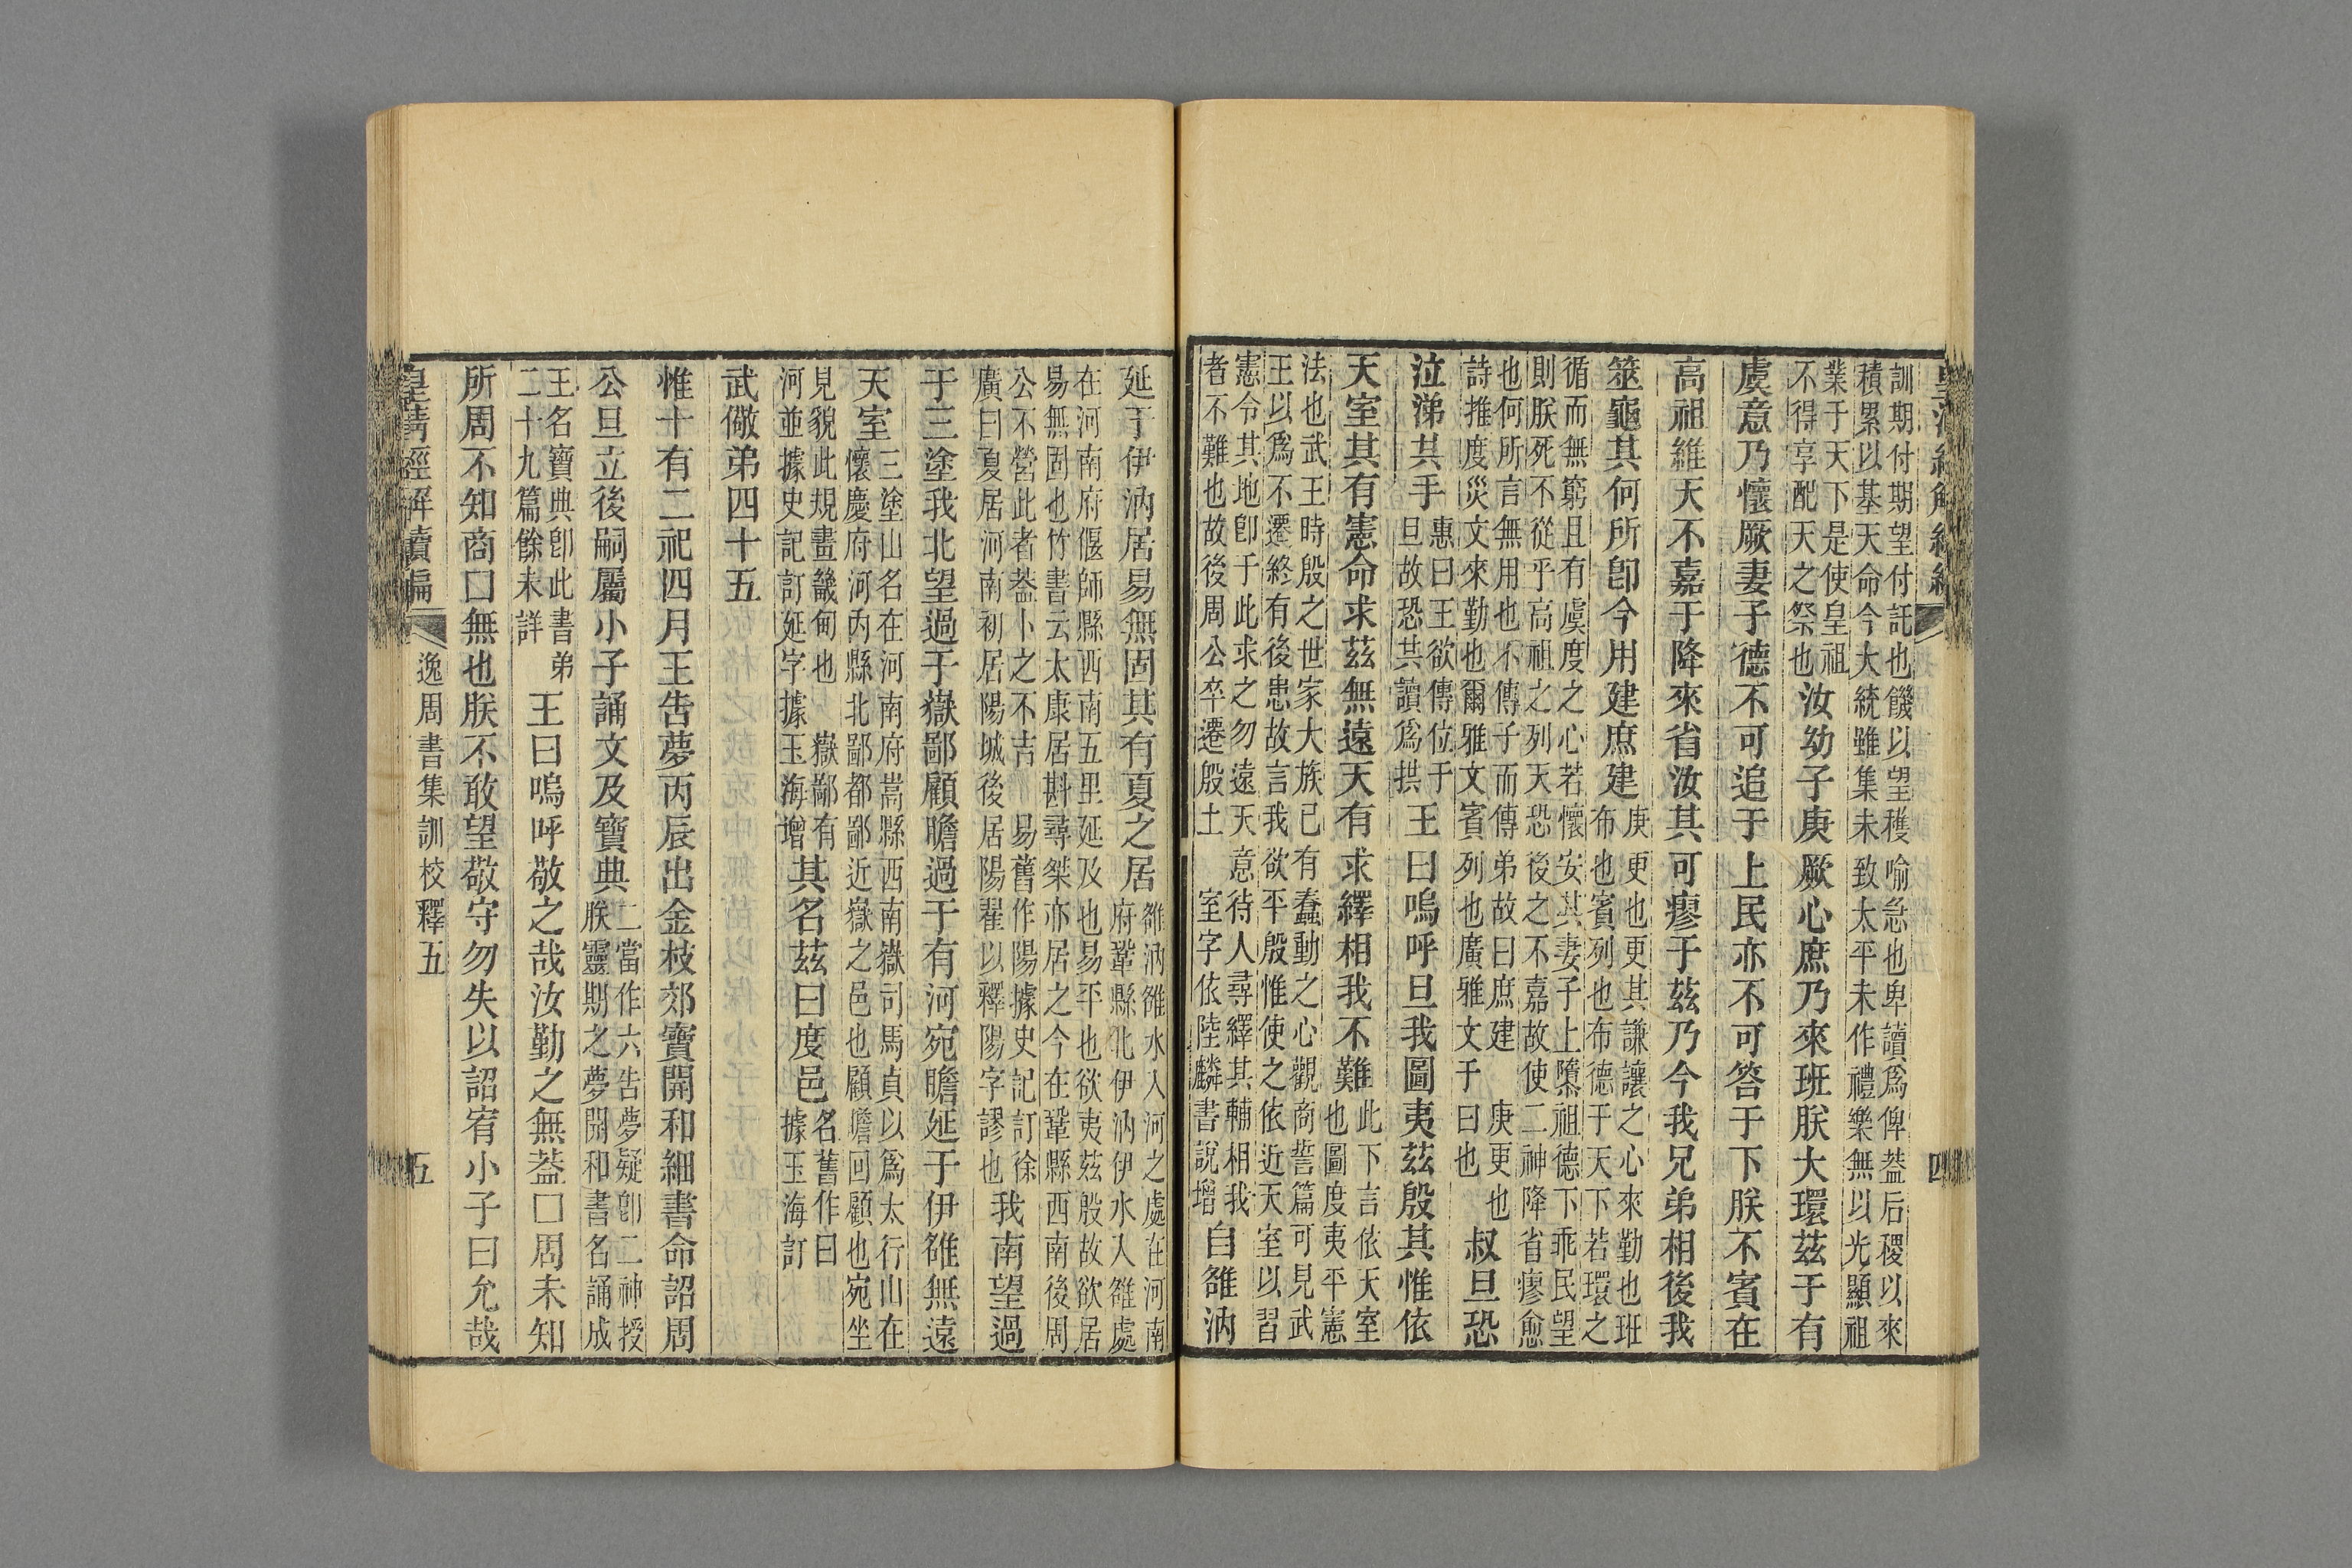 訓期付期望付託也饑以望穫喻急也卑讀爲俾葢后稷以來
積累以基天命今大統雖集未致太平未作禮樂無以光顯祖
業于天下是使皇祖
不得享配天之祭也
汝幼子庚厥心庶乃來班朕大環茲于有
虞意乃懷厥妻子德不可追于上民亦不可答于下朕不賓在
高祖維天不嘉于降來省汝其可瘳于茲乃今我兄弟相後我
筮龜其何所卽今用建庶建
庚更也更其謙讓之心來勤也班
布也賓列也布德于天下若環之
循而無窮且有虞度之心若懷安其妻子上隳祖德下乖民望
則朕死不從乎高祖之列天恐後之不嘉故使二神降省瘳愈
也何所言無用也不傳子而傳弟故曰庶建 庚更也
詩推度災文來勤也爾雅文賓列也廣雅文于曰也
叔旦恐
泣涕其手
惠曰王欲傳位于
旦故恐其讀爲拱
王曰嗚呼旦我圖夷茲殷其惟依
天室其有憲命求茲無遠天有求繹相我不難
此下言依天室
也圖度夷平憲
法也武王時殷之世家大族已有蠢動之心觀商誓篇可見武
王以爲不遷終有後患故言我欲平殷惟使之依近天室以習
憲令其地卽于此求之勿遠天意待人尋繹其輔相我
者不難也故後周公卒遷殷土 室字依陸麟書說增
自雒汭
四
延于伊汭居易無固其有夏之居
雒汭雒水入河之處在河南
府鞏縣北伊汭伊水入雒處
在河南府偃師縣西南五里延及也易平也欲夷茲殷故欲居
易無固也竹書云太康居斟尋桀亦居之今在鞏縣西南後周
公不營此者葢卜之不吉 易舊作陽據史記訂徐
廣曰夏居河南初居陽城後居陽翟以釋陽字謬也
我南望過
于三塗我北望過于嶽鄙顧瞻過于有河宛瞻延于伊雒無遠
天室
三塗山名在河南府嵩縣西南嶽司馬貞以爲太行山在
懷慶府河內縣北鄙都鄙近嶽之邑也顧瞻回顧也宛坐
見貌此規畫畿甸也 嶽鄙有
河並據史記訂延字據玉海增
其名茲曰度邑
名舊作曰
據玉海訂
武儆弟四十五
惟十有二祀四月王告夢丙辰出金枝郊寶開和細書命詔周
公旦立後嗣屬小子誦文及寶典
二當作六告夢疑卽二神授
朕靈期之夢開和書名誦成
王名寶典卽此書弟
二十九篇餘未詳
王曰嗚呼敬之哉汝勤之無葢囗周未知
所周不知商囗無也朕不敢望敬守勿失以詔宥小子曰允哉
皇清經解續編 逸周書集訓校釋五 五